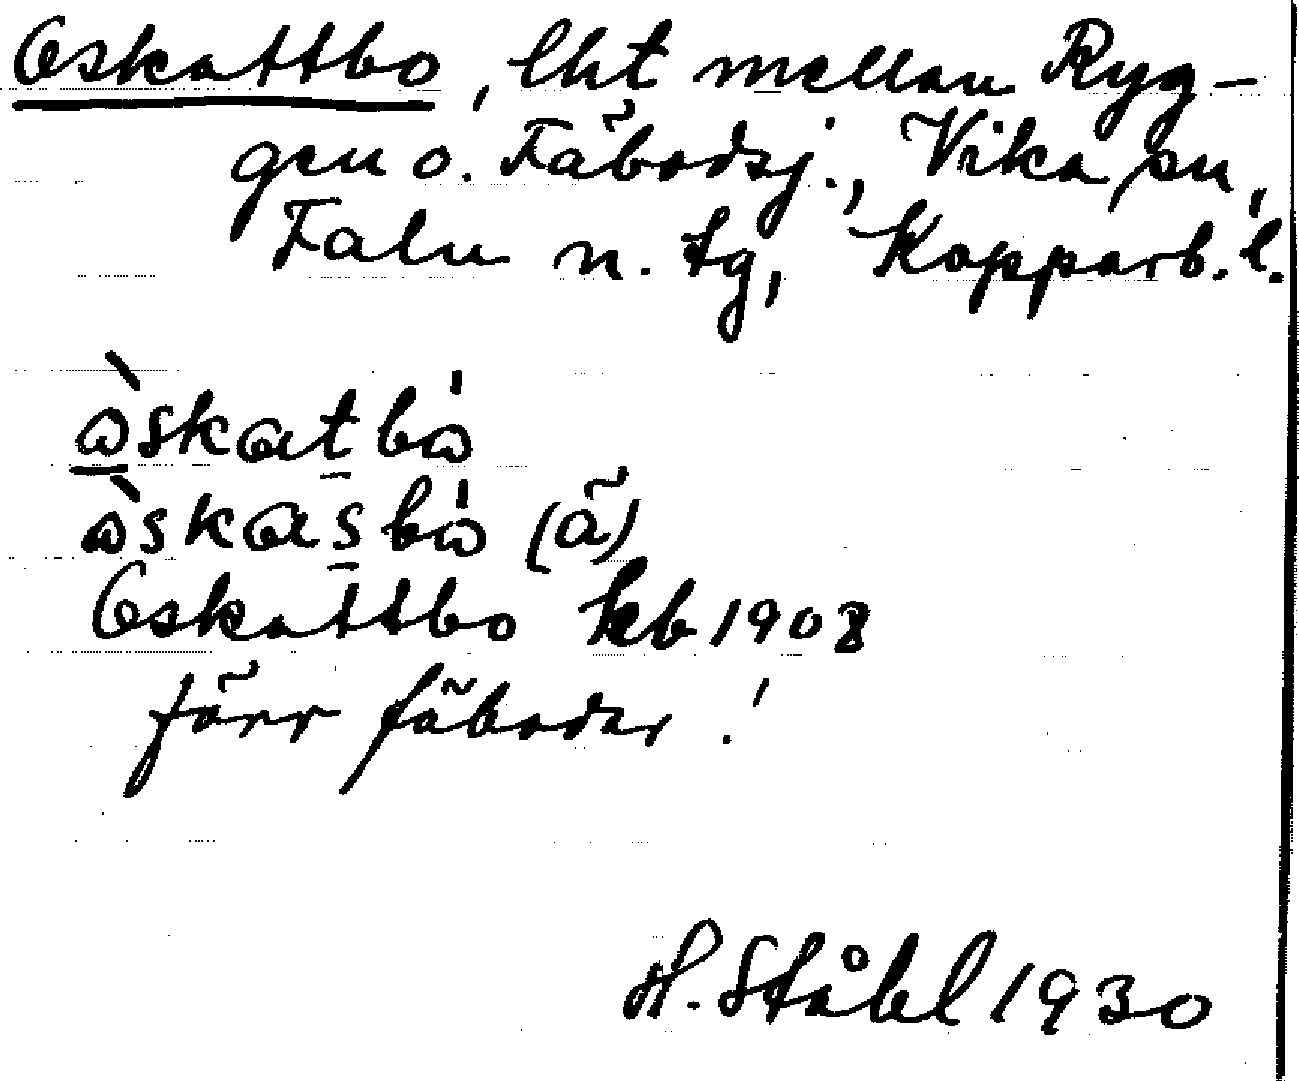 Oskattbo, lht mellan Ryg-
gen o. Fäbodsj., Vika sn,
Falu n. tg, Kopparb. l.
òskatbò
òskasbò (ä)
Oskattbo kb 1908
förr fäbodar!
H. Ståhl 1930